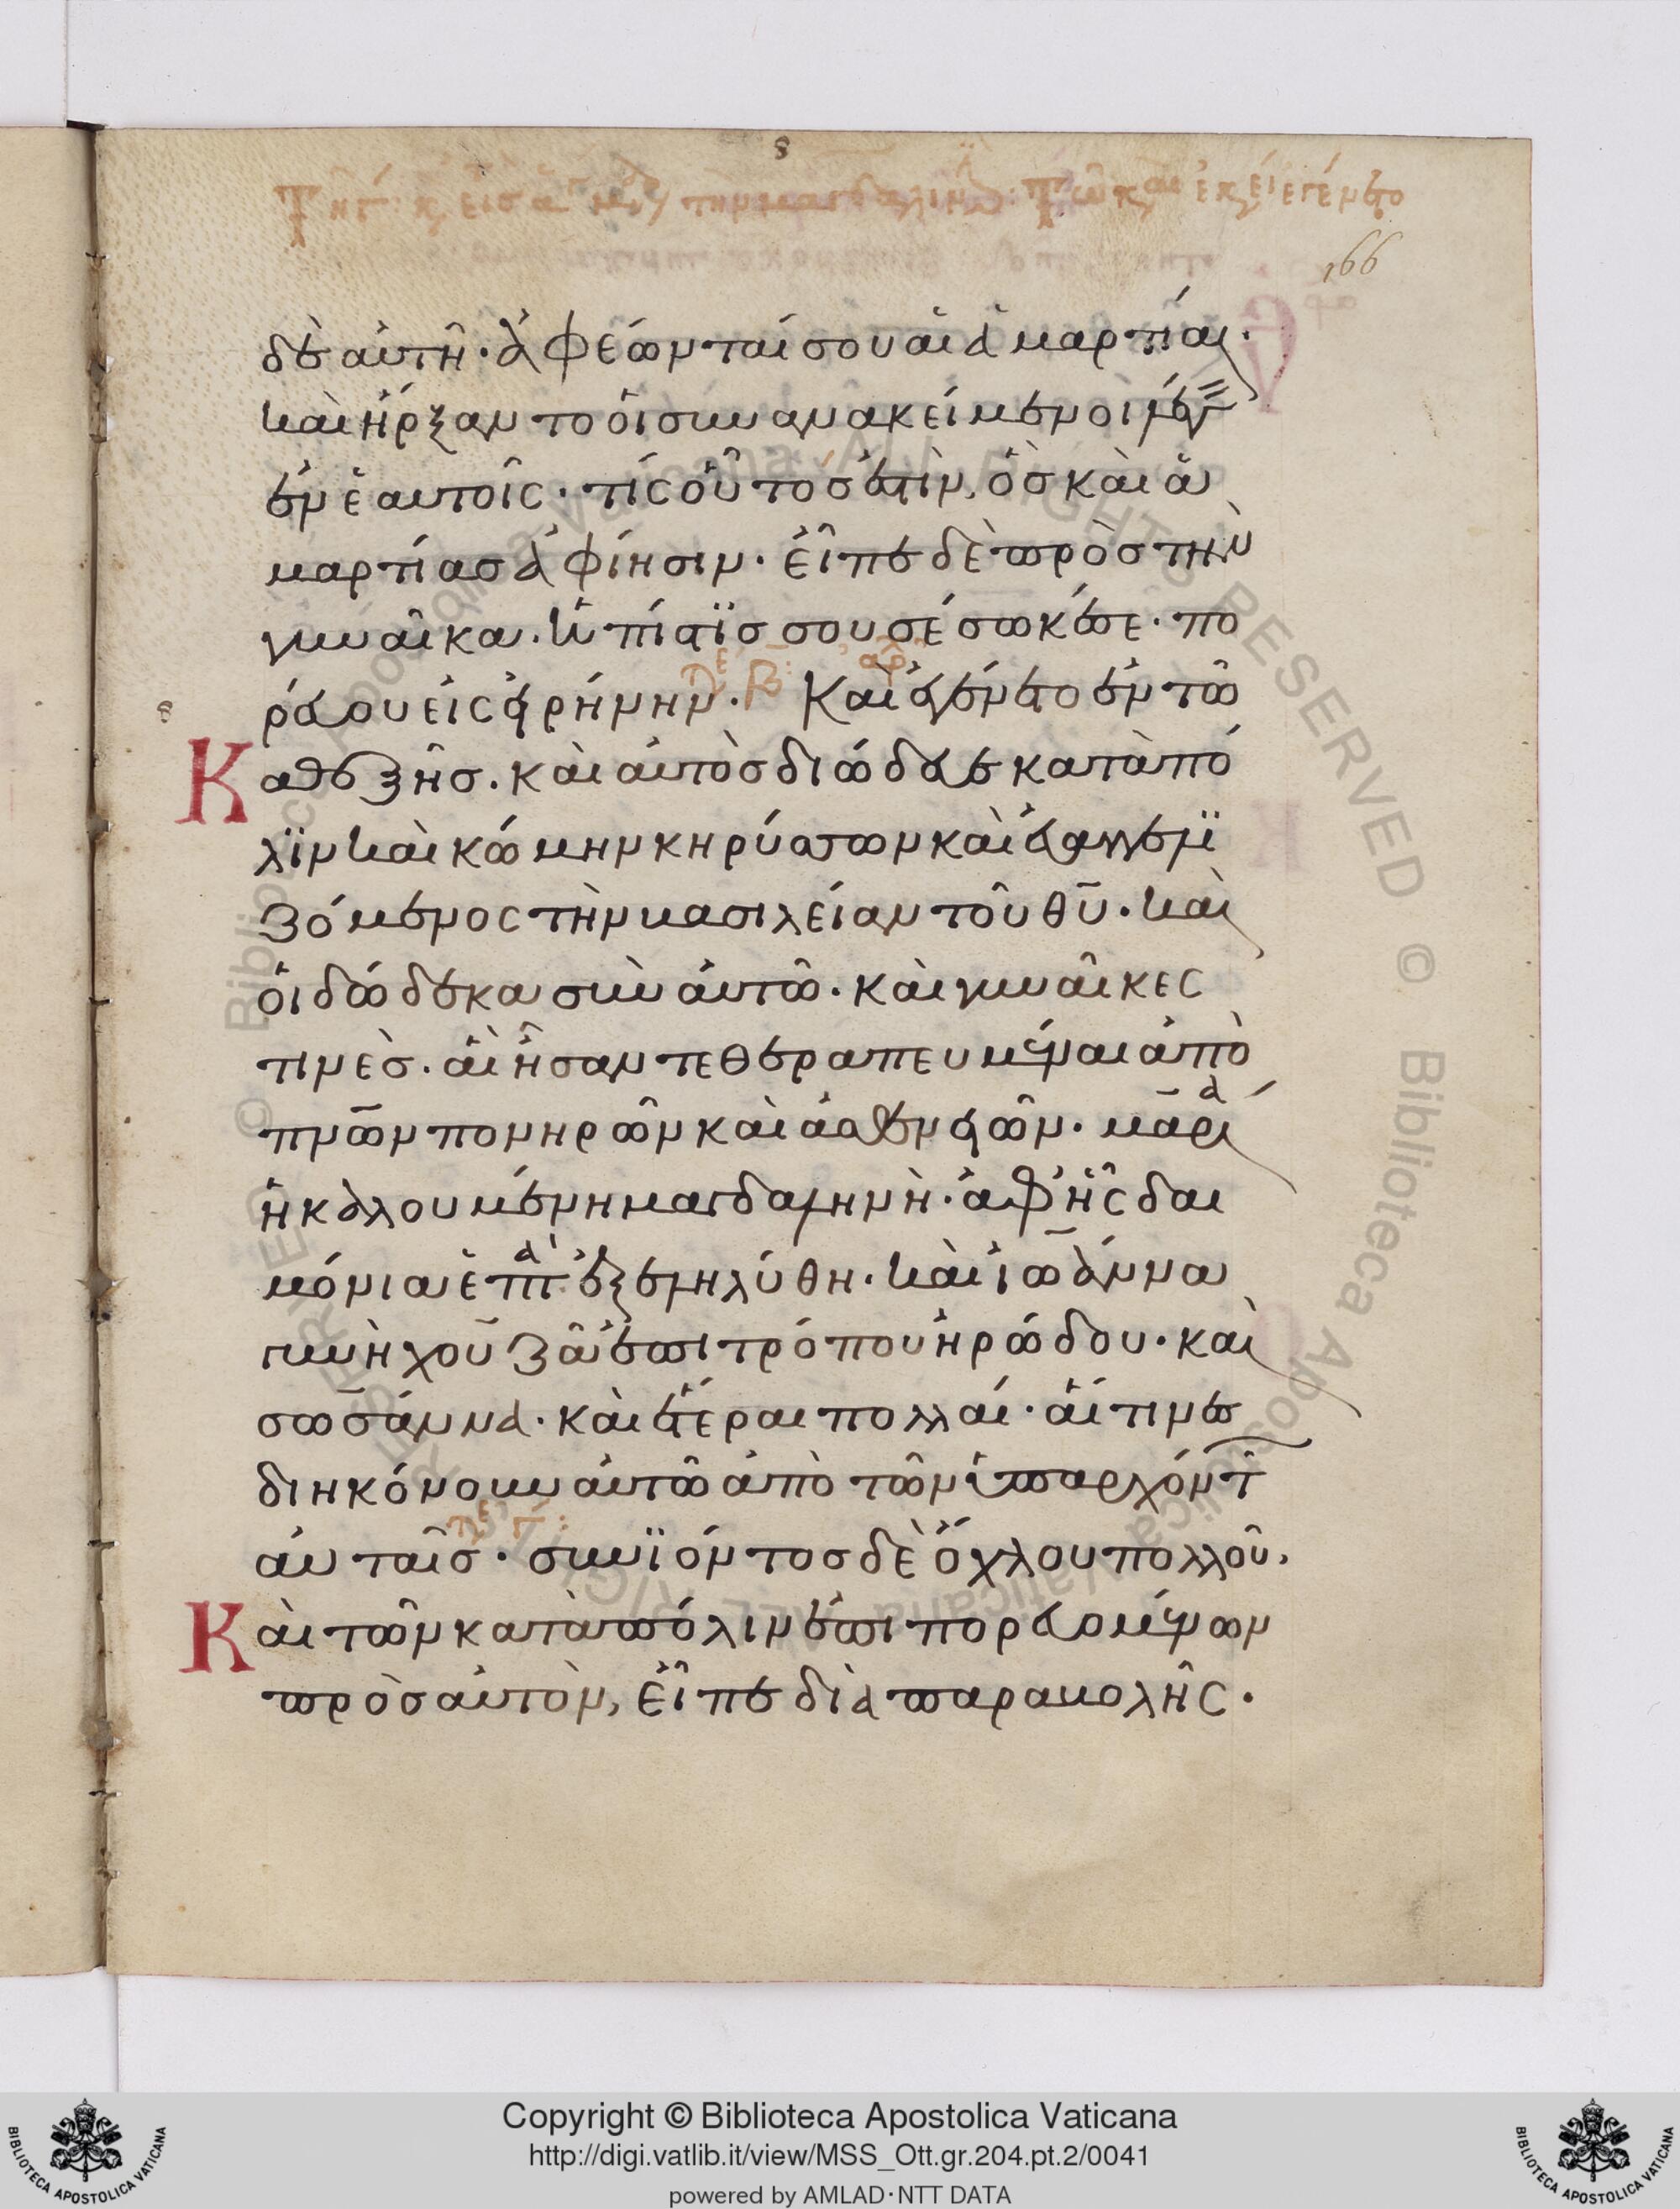 166
δε αὐτῆ· ἀφέωνταί σου αἱ ἁμαρτίαι·
καὶ ἤρξαντο οἱ συνανακείμενοι λέγ
ἐν ἑαυτοῖς· τίς οὗτός ἐστὶν, ὃς καὶ ἁ
μαρτίας ἀφίησιν· εἶπε δὲ πρὸς τὴν
γυναῖκα· ἡ πίστϊς σου σέσωκέ σε· πο
ρεύου εἰς εἰρήνην· Καὶ ἐγένετο ἐν τῶ
Καθεξῆς· καὶ αὐτὸς διώδευε κατὰ πό
λϊν καὶ κώμην κηρύσσων καὶ εὐαγγελϊ
ζόμενος τὴν βασιλείαν τοῦ θῦ· καὶ
οἱ δώδεκα σὺν αὐτῶ· καὶ γυναῖκες
τινὲς· αἳ ἦσαν τεθεραπευμέναι ἀπὸ
πνῶν πονηρῶν καὶ ἀσθενειῶν· μαρία
ἡ καλουμένη μαγδαληνὴ· ἀφ' ἧς δαι
μόνια ἑπτὰ ἐξεληλύθη· καὶ ἰωάννα
γυνὴ χουζᾶ ἐπιτρόπου ἡρώδου· καὶ
σωσάννα· καὶ ἕτεραι πολλαί· αἵτινες
διηκόνουν αὐτῶ ἀπὸ τῶν ὑπαρχόντ
αὐταῖς· συνϊόντος δὲ ὄχλου πολλοῦ,
Καὶ τῶν κατὰ πόλιν ἐπιπορευομένων
πρὸς αὐτὸν, εἶπε διὰ παραβολῆς·
© Biblioteca Apostolica Vaticana ALL RIGHTS RESERVED
Copyright © Biblioteca Apostolica Vaticana
http://digi.vatlib.it/view/MSS_Ott.gr.204.pt.2/0041
powered by AMLAD·NTT DATA
BIBLIOTECA APOSTOLICA VATICANA
BIBLIOTECA APOSTOLICA VATICANA